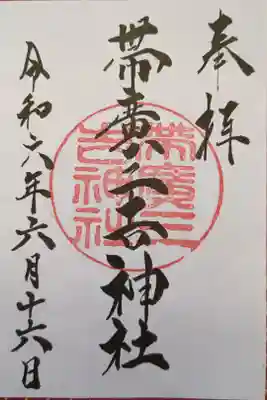 奉拝
帯廣三吉神社
帯廣三吉神社
令和六年六月十六日